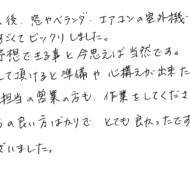 後、窓やベランダ、エアコンの室外機
ごくてビックリしました。
予想できる事と今思えば当然です。
して頂けると準備や心構えが出来た
担当の営業の方も、作業をしてくださ
の良い方ばかりで、とても良かったです
ざいました。